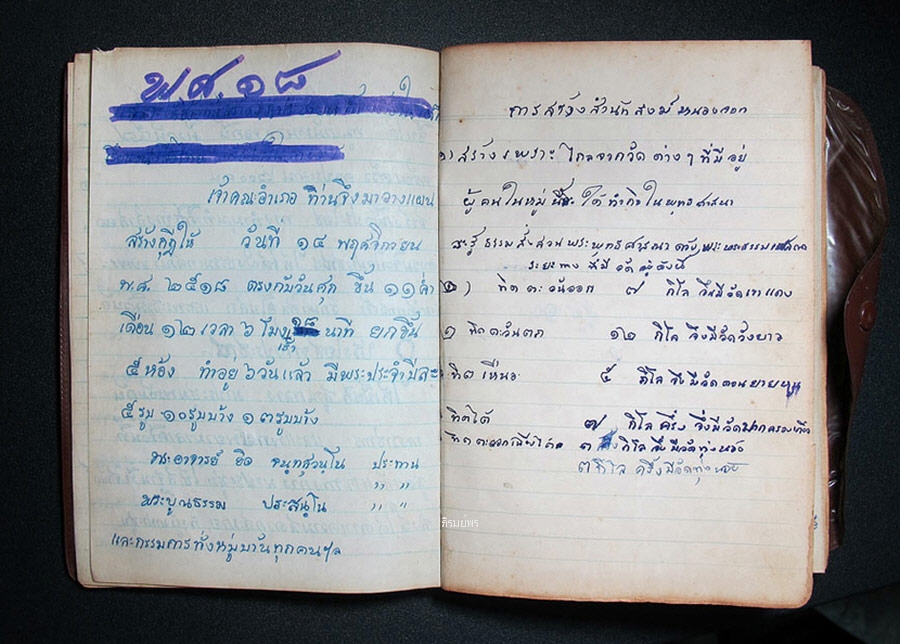 พ.ศ. ๑๘
เจ้าคณะอำเภอ ท่านจึงมาวางแผน
สร้างกุฏิให้ วันที่ ๑๔ พฤศจิกายน
พ.ศ. ๒๕๑๘ ตรงกับวันศุก ขึ้น ๑๑ ค่ำ
เดือน ๑๒ เวลา ๖ โมง ๑๘ นาที ยกขึ้น
เช้า
๕ ห้อง ทำอยู่ ๖ วันแล้ว มีพระประจำปีละ
๕ รูป ๑๐ รูปบ้าง ๑๓ รูปบ้าง
พระอาจารย์ ประทาน
พระบุญธรรม ประสนฺโน " "
และกรรมการทั้งหมู่บ้านทุกคนฯล
การสร้างสำนักสงฆ์หนองกอก
๑) สร้างเพราะไกลจากวัดต่างๆที่มีอยู่
ผู้คนในหมู่นี้จะได้ทำกิจในพุทธศาสนา
จะรู้ธรรมสั่งสอนพระพุทธศาสนา
ระยะทาง ที่มีวัดอยู่ดังนี้
๑) ทิศตะวันออก ๗ กิโล จึงมีวัดเขาแดง
๒ ทิศตะวันตก ๑๒ กิโล จึงมีวัดวังยาว
ทิศเหนือ ๕ กิโล จึงมีวัดดอนยายหนู
ทิศใต้ ๗ กิโลครึ่ง จึงมีวัด
๓ กิโล จึงมีวัดทุ่ง
๓ กิโล ครึ่งมีวัดทุ่ง
ภิรมยพร